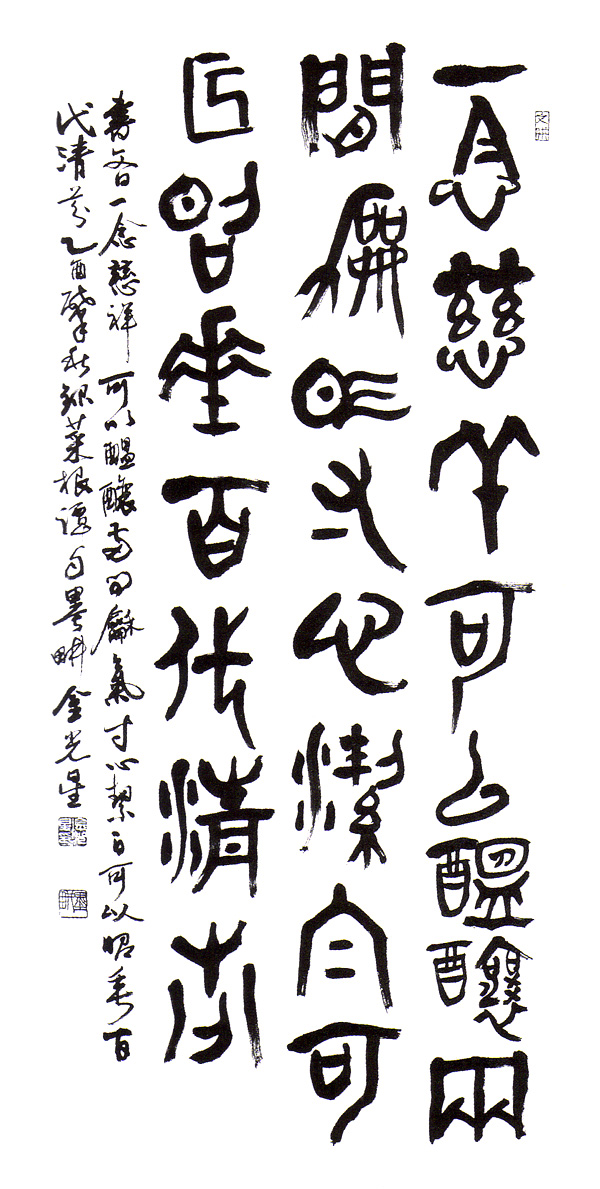 一念慈祥可以醞釀兩
間龢氣寸心潔白可
以昭垂百代清芬
一念慈祥可以醞釀兩間龢氣寸心絜白可以昭垂百
代清芬乙酉肇秋錄菜根譚句墨畊金光星